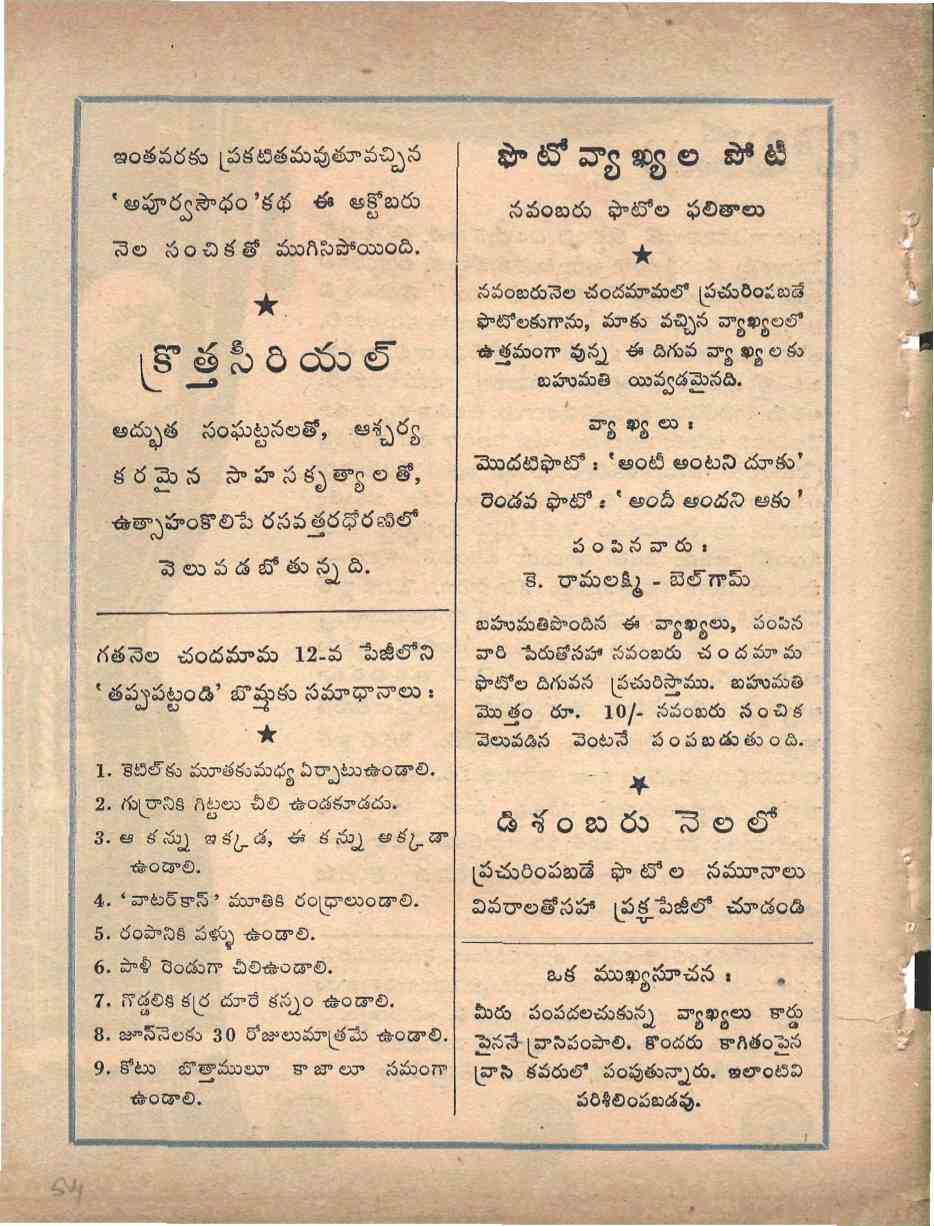 ఇంతవరకు ప్రకటితమవుతూవచ్చిన
'అపూర్వసౌధం' కథ ఈ అక్టోబరు
నెల సంచికతో ముగిసిపోయింది.
★
క్రొత్తసీరియల్
అద్భుత సంఘట్టనలతో, ఆశ్చర్య
కరమైన సాహసకృత్యాలతో,
ఉత్సాహంకొలిపే రసవత్తరధోరణిలో
వెలువడబోతున్నది.
గతనెల చందమామ 12-వ పేజీలోని
'తప్పుపట్టండి' బొమ్మకు సమాధానాలు :
★
1. కెటిల్‌కు మూతకుమధ్య ఏర్పాటుఉండాలి.
2. గుర్రానికి గిట్టలు చీలి ఉండకూడదు.
3. ఆ కన్ను ఇక్కడ, ఈ కన్ను అక్కడా
ఉండాలి.
4. 'వాటర్‌కాన్' మూతికి రంధ్రాలుండాలి.
5. రంపానికి పళ్ళు ఉండాలి.
6. పాళీ రెండుగా చీలిఉండాలి.
7. గొడ్డలికి కర్ర దూరే కన్నం ఉండాలి.
8. జూన్‌నెలకు 30 రోజులుమాత్రమే ఉండాలి.
9. కోటు బొత్తాములూ కాజాలూ సమంగా
ఉండాలి.
ఫొటో వ్యాఖ్యల పోటీ
నవంబరు ఫొటోల ఫలితాలు
★
నవంబరునెల చందమామలో ప్రచురింపబడే
ఫొటోలకుగాను, మాకు వచ్చిన వ్యాఖ్యలలో
ఉత్తమంగా వున్న ఈ దిగువ వ్యాఖ్యలకు
బహుమతి యివ్వడమైనది.
వ్యాఖ్యలు :
మొదటిఫొటో : 'అంటీ అంటని దూకు'
రెండవ ఫొటో : 'అందీ అందని ఆకు'
పంపినవారు :
కె. రామలక్ష్మి - బెల్‌గామ్
బహుమతిపొందిన ఈ వ్యాఖ్యలు, పంపిన
వారి పేరుతోసహా నవంబరు చందమామ
ఫొటోల దిగువన ప్రచురిస్తాము. బహుమతి
మొత్తం రూ. 10/- నవంబరు సంచిక
వెలువడిన వెంటనే పంపబడుతుంది.
★
డిశంబరు నెలలో
ప్రచురింపబడే ఫొటోల నమూనాలు
వివరాలతోసహా ప్రక్కపేజీలో చూడండి
ఒక ముఖ్యసూచన :
మీరు పంపదలచుకున్న వ్యాఖ్యలు కార్డు
పైననే వ్రాసిపంపాలి. కొందరు కాగితంపైన
వ్రాసి కవరులో పంపుతున్నారు. ఇలాంటివి
పరిశీలింపబడవు.
54